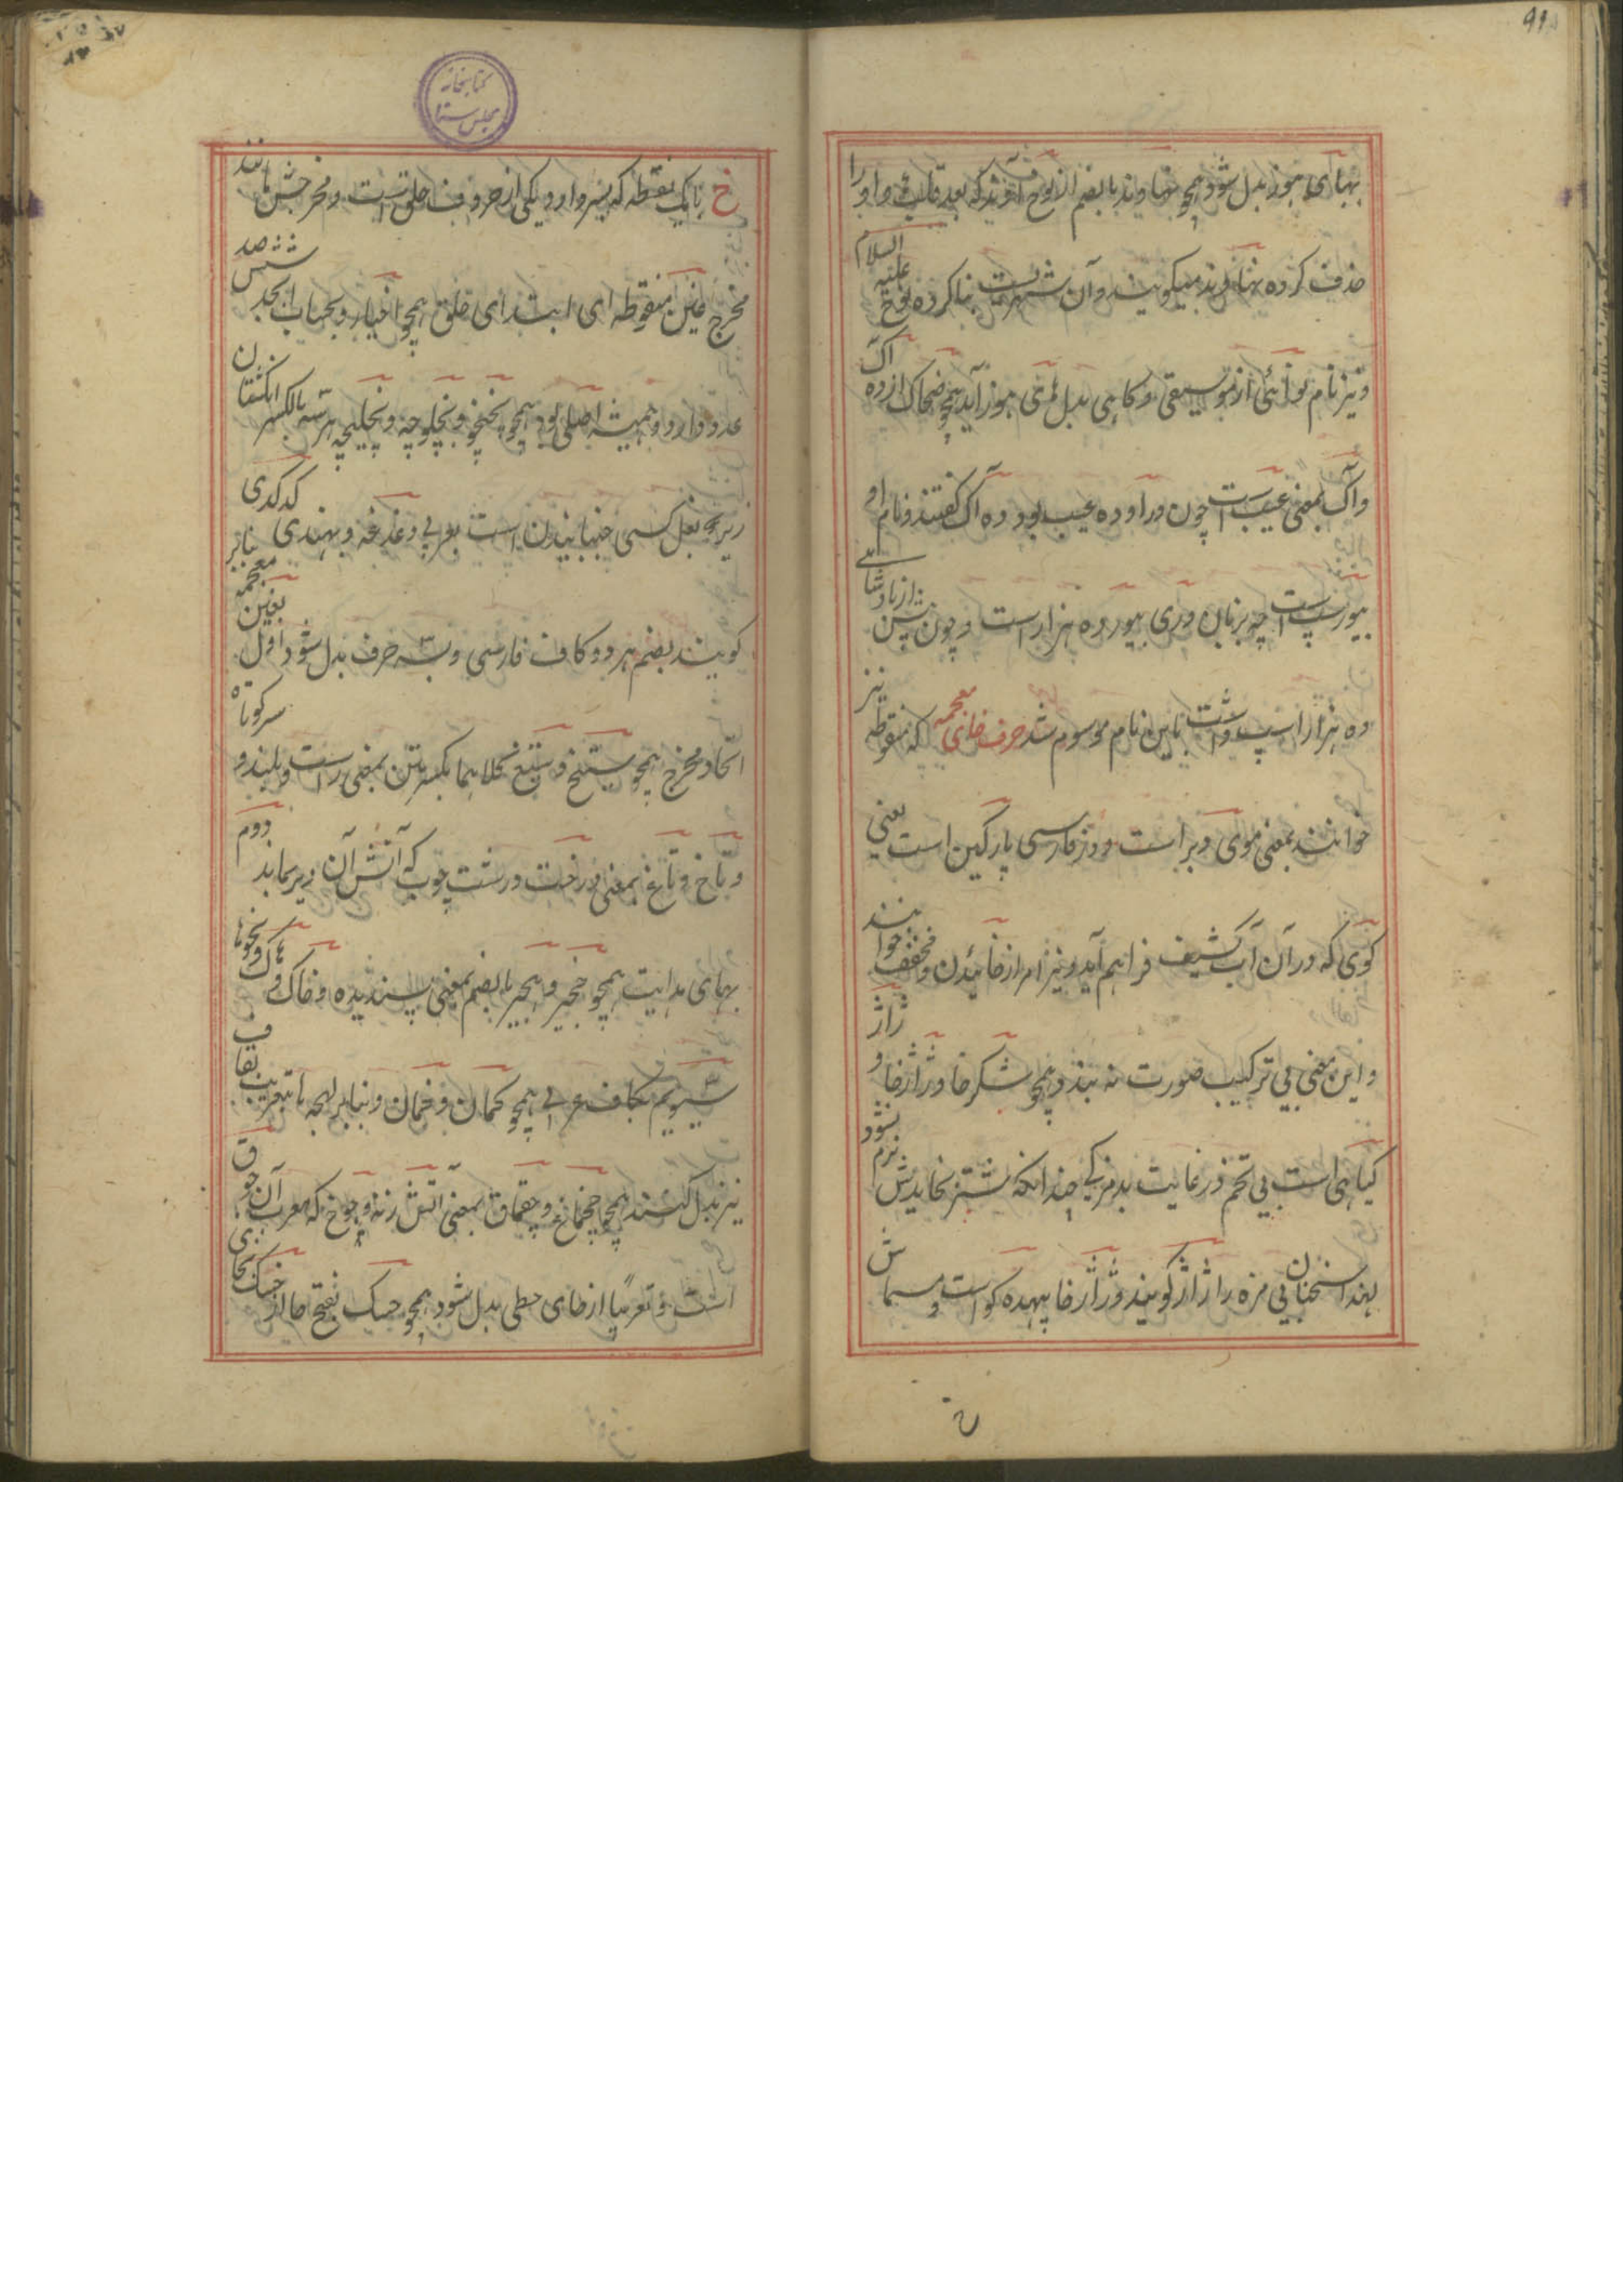 ۹۱
بهای هوز بدل شود همچو نهاوند بالضم از نوح آوند که بعد قلب واو را
حذف کرده نهاوند میگویند و آن شهریست بنا کرده نوح علیه السلام
و نیز نام نوائی از موسیقی و گاهی بدل های هوز آید همچو ضحاک از ده آک
و آک بمعنی عیب است چون در او ده عیب بود ده آک گفتند و نام او
بیورسپ است چه بزبان دری بیور ده هزار است و چون پیش از پادشاهی
ده هزار اسپ داشت باین نام موسوم شد حرف خای معجمه که منقوطه نیز
خوانند بمعنی موی و بر است و در فارسی پارگین است یعنی
گوی که در آن آب کثیف فراهم آید و نیز امر از خائیدن و مخفف خوانند
و این معنی بی ترکیب صورت نه بندد همچو شکرخا و ژاژخا و ژاژ
گیاهی است بی تخم در غایت بدمزگی چندانکه شتر بخایدش نرم نشود
لهذا سخنان بی مزه را ژاژ گویند و ژاژخا بیهده گو است و مسماش
کتابخانه
مجلس سنا
خ با یک نقطه که بسر دارد و یکی از حروف حلق است و مخرجش مانند
مخرج غین منقوطه ای ابتدای حلق همچو اخیار و بحساب ابجد ششصد
عدد دارد و همیشه اصلی بود همچو پخپخو و پخلوچه و پخلیچه هر سه بالکسر انگشتان
زیر بغل کسی جنبانیدن است بعربی دغدغه و بهندی گدگدی
گویند بضم هر دو کاف فارسی و بسه حرف بدل شود اول بغین معجمه بنابر
اتحاد مخرج همچو ستیخ و ستیغ کلاهما بکسرتین بمعنی راست و بلند و سرکوتاه
و تاخ و تاغ بمعنی درخت درشت چوب که آتش آن دیر بماند دوم
بهای هدایت همچو خجیر و هجیر بالضم بمعنی پسندیده و خاک و هاک و نحوها
سیوم بکاف عربی همچو کمان و خمان و بنابر لهجه یا تعریب بقاف
نیز بدل کنند همچو چخماغ و چقماق بمعنی آتش زنه و چوخ که معرب آن جوق
است و تعریبا از حای حطی بدل شود همچو حبک بفتح حا از خبک بخای